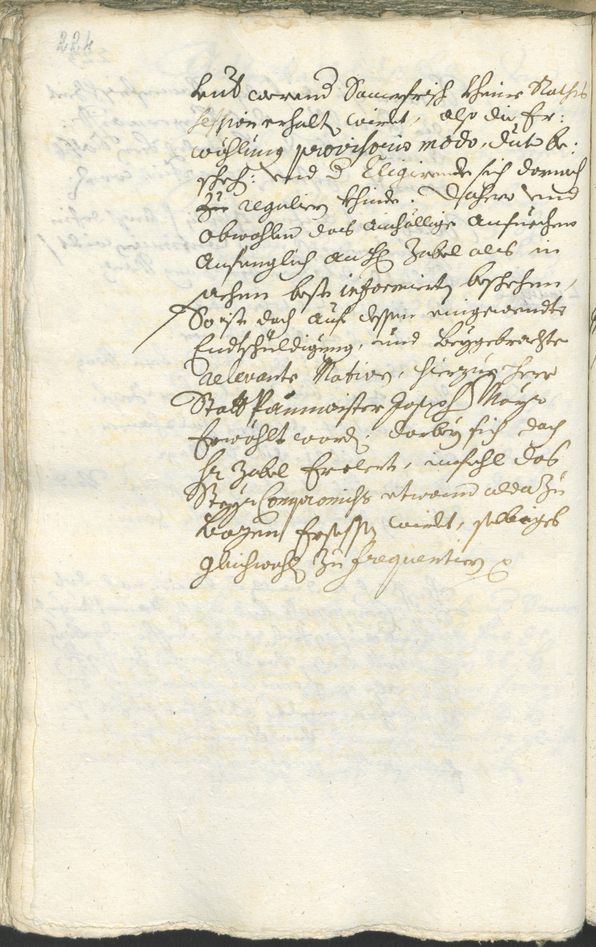 224
leut werend Sauerfrisch kheine Raths
session erhalt wirdt, also die Er:
wöhlung provisorio modo, dut be:
scheh: und d Eligirende sich darnach
zu regulirn khinde. Dahero und
obwohlen das ainhöllige Ansuechen
Anfenglich an H Zobel als in
sachen best informirt beschehen,
So ist doch auf dessen eingewendte
Endtschuldigung, und beygebrachte
relevante Motiven, hierzue Herr
Statt Paumaister Joseph Mayr
Erwöhlt word, darbey sich doch
H Zobel Erclert, im fahl das
Steyr Compromiss etwann alda zu
Bozen wirdt, selbiges
gleichwohl zu frequentirn